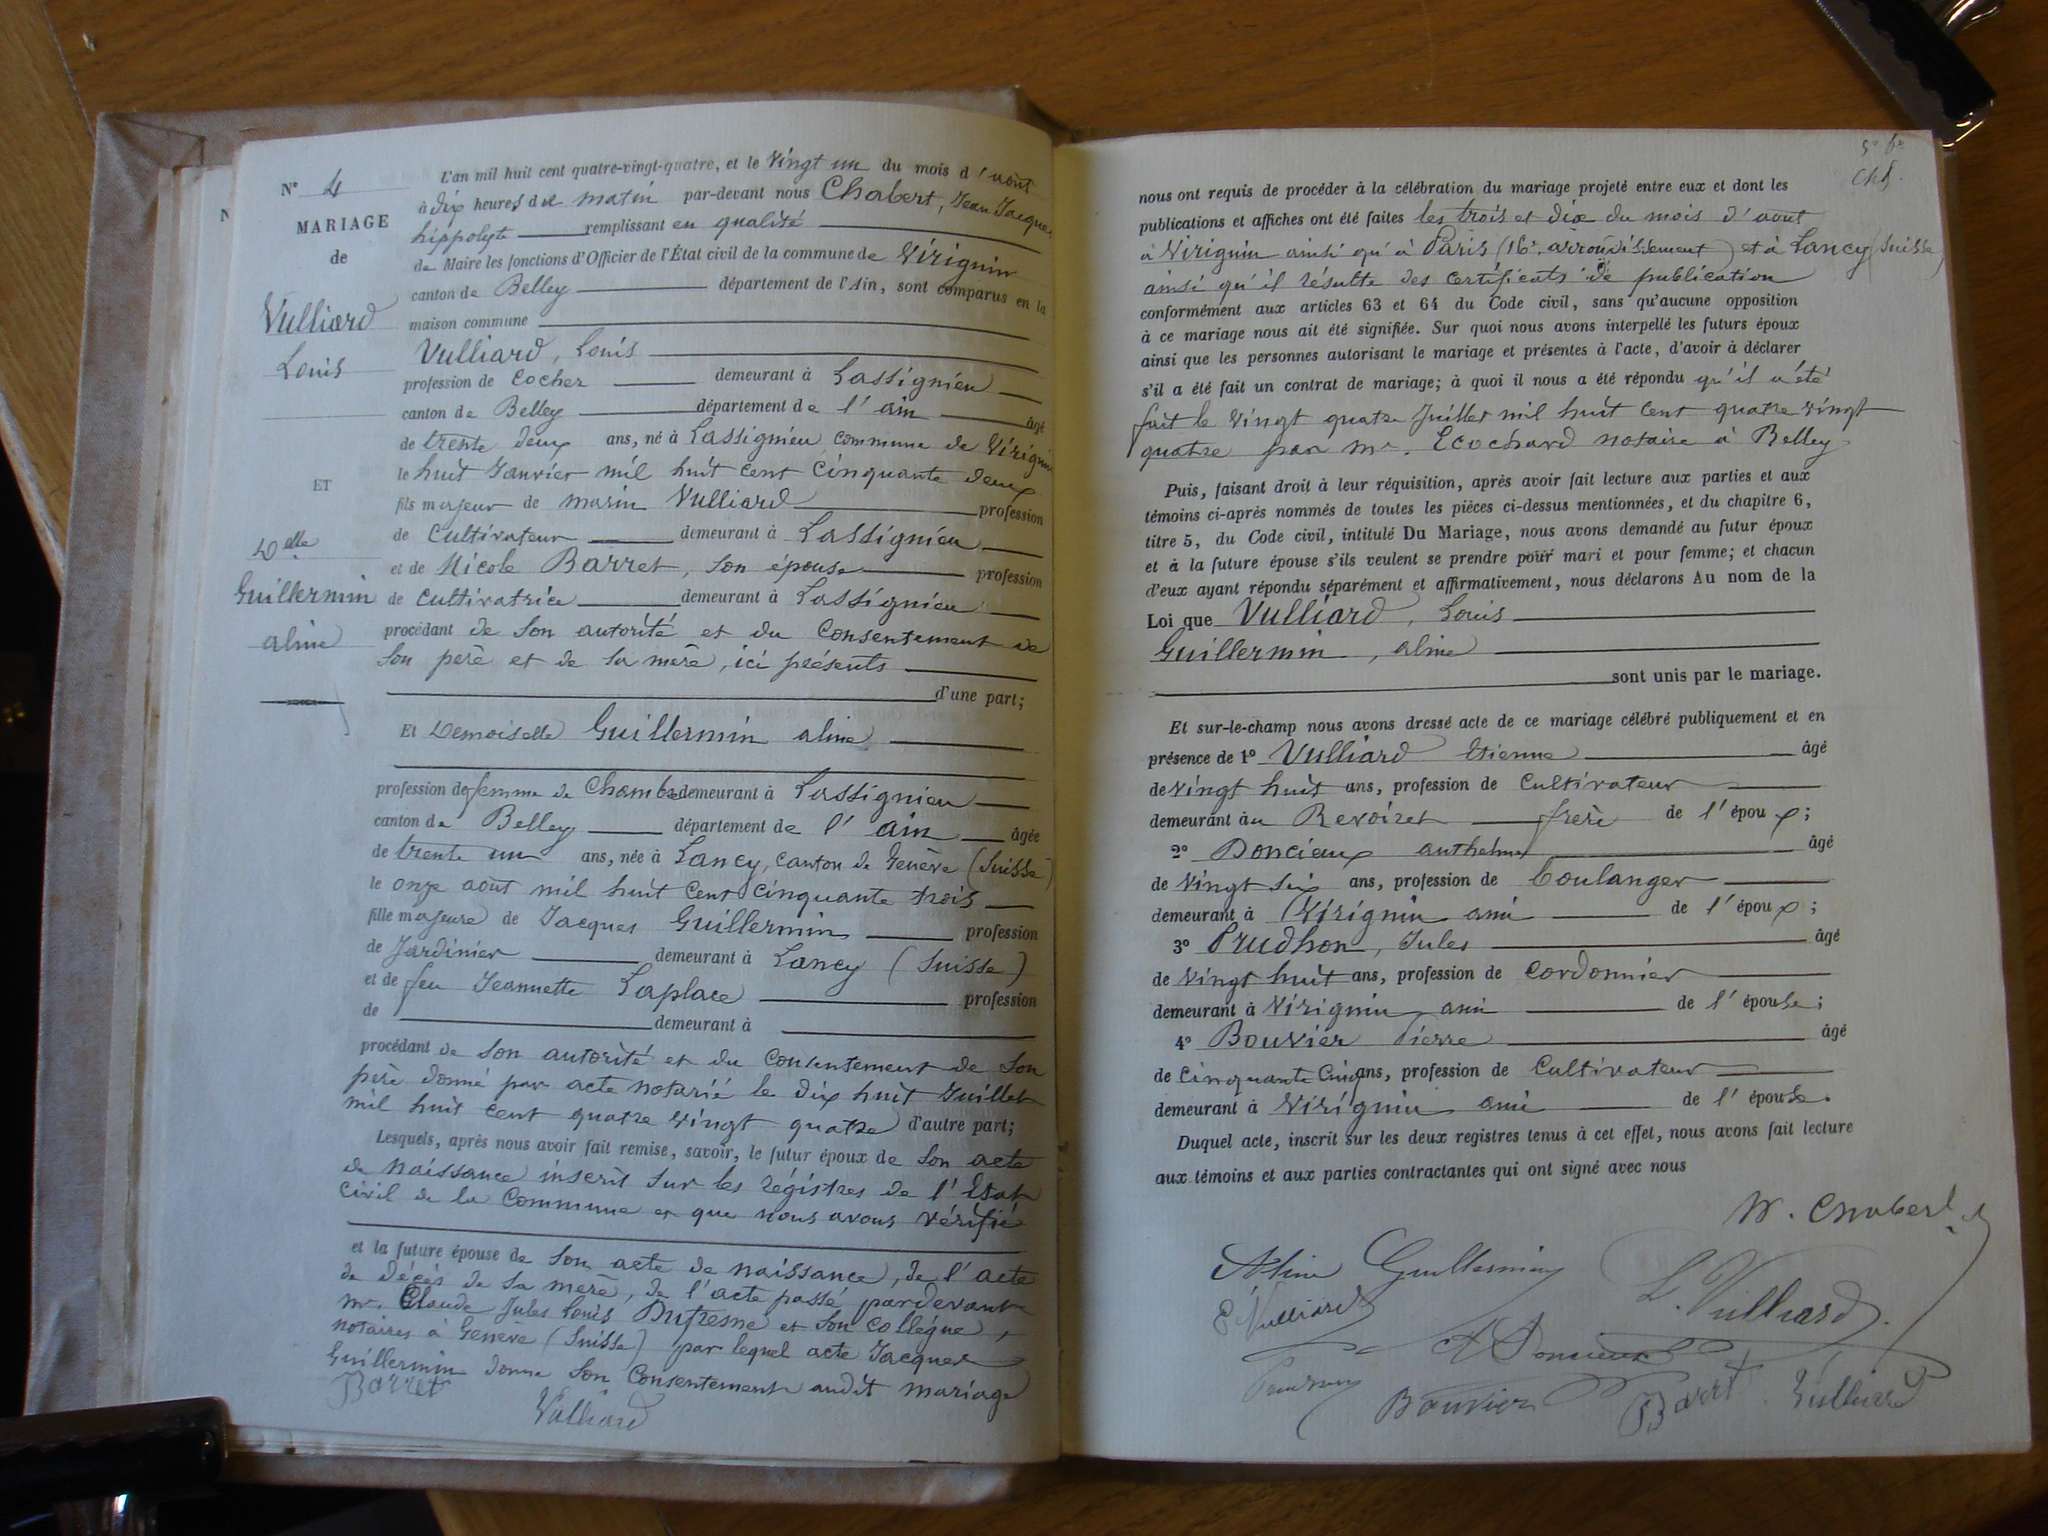 N° 4
MARIAGE
de
Vulliard
Louis
ET
Delle
Guillermin
aline
L'an mil huit cent quatre-vingt-quatre, et le vingt un du mois d'aout
à dix heures du matin par-devant nous Chabert, Jean Jacques
hippolyte remplissant en qualité
de Maire les fonctions d'Officier de l'État civil de la commune de Virignin
canton de Belley département de l'Ain, sont comparus en la
maison commune
Vulliard, Louis
profession de cocher demeurant à Lassignieu
canton de Belley département de l'ain âgé
de trente deux ans, né à Lassignieu commune de Virignin
le huit Janvier mil huit cent cinquante deux
fils majeur de marin Vulliard profession
de Cultivateur demeurant à Lassignieu
et de Nicole Barret, son épouse profession
de cultivatrice demeurant à Lassignieu
procédant de son autorité et du consentement de
son perè et de sa merè, ici présents
d'une part;
Et Demoiselle Guillermin aline
profession de femme de Chambre demeurant à Lassignieu
canton de Belley département de l'ain âgée
de trente un ans, née à Lancy, canton de Genève (Suisse)
le onze août mil huit cent cinquante trois
fille majeure de Jacques Guillermin profession
de Jardinier demeurant à Lancy (Suisse)
et de feu Jeannette Laplace profession
de demeurant à
procédant de son autorité et du consentement de son
perè donné par acte notarié le dix huit Juillet
mil huit cent quatre vingt quatre d'autre part;
Lesquels, après nous avoir fait remise, savoir, le futur époux de son acte
de naissance inscrit sur les régistres de l'Etat
civil de la Commune et que nous avons vérifié
et la future épouse de son acte de naissance, de l'acte
de décès de sa merè, de l'acte passé pardevant
Mr. Claude Jules Louis Dufresne et son collègue,
notaires à Genève (Suisse) par lequel acte Jacques
Guillermin donne son consentement audit mariage
Barret Vulliard
nous ont requis de procéder à la célébration du mariage projeté entre eux et dont les
publications et affiches ont été faites les trois et dix du mois d'aout
à Virignin ainsi qu'à Paris (16e arrondissement) et à Lancy (Suisse)
ainsi qu'il résulte des certificats de publication
conformément aux articles 63 et 64 du Code civil, sans qu'aucune opposition
à ce mariage nous ait été signifiée. Sur quoi nous avons interpellé les futurs époux
ainsi que les personnes autorisant le mariage et présentes à l'acte, d'avoir à déclarer
s'il a été fait un contrat de mariage; à quoi il nous a été répondu qu'il a été
fait le vingt quatre Juillet mil huit cent quatre vingt
quatre par Mr. Ecochard notaire à Belley
Puis, faisant droit à leur réquisition, après avoir fait lecture aux parties et aux
témoins ci-après nommés de toutes les pièces ci-dessus mentionnées, et du chapitre 6,
titre 5, du Code civil, intitulé Du Mariage, nous avons demandé au futur époux
et à la future épouse s'ils veulent se prendre pour mari et pour femme; et chacun
d'eux ayant répondu séparément et affirmativement, nous déclarons Au nom de la
Loi que Vulliard, Louis
Guillermin, aline
sont unis par le mariage.
Et sur-le-champ nous avons dressé acte de ce mariage célébré publiquement et en
présence de 1° Vulliard Etienne âgé
de vingt huit ans, profession de Cultivateur
demeurant au Revoiret frerè de l'époux;
2° Doncieux anthelme âgé
de vingt six ans, profession de boulanger
demeurant à Virignin ami de l'époux;
3° Prudhon, Jules âgé
de vingt huit ans, profession de cordonnier
demeurant à Virignin ami de l'épouse;
4° Bouvier Pierre âgé
de cinquante Cinq ans, profession de Cultivateur
demeurant à Virignin ami de l'épouse.
Duquel acte, inscrit sur les deux registres tenus à cet effet, nous avons fait lecture
aux témoins et aux parties contractantes qui ont signé avec nous
H. Chabert
Aline Guillermin L. Vulliard
E. Vulliard A Doncieux
Bouvier Barret Vulliard